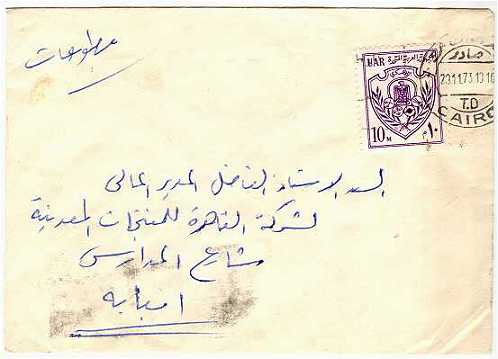 مطبوعات
UAR الجمهورية العربية المتحدة
10 M ١٠ م
صادر
20.11.73.10
T.D
CAIRO
السيد الاستاذ الفاضل المدير المالى
لشركة القاهرة للمنتجات المعدنية
شارع المدارس
امبابه